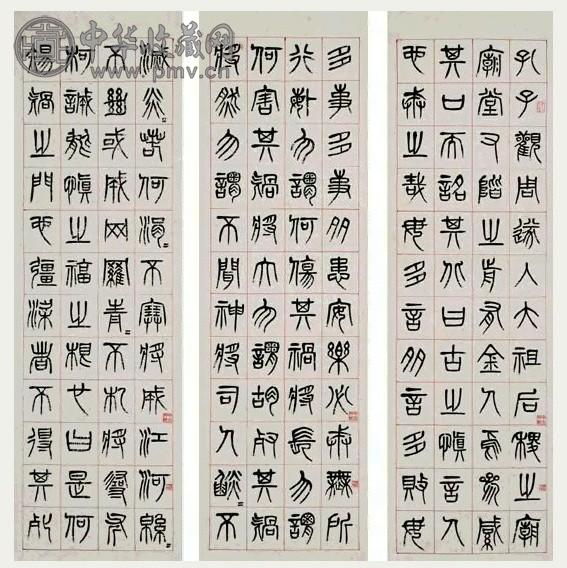 中华收藏网
www.pmv.cn
孔子觀周遂入大祖后稷之廟
廟堂右階之前有金人焉參緘
其口而銘其背曰古之慎言人
也戒之哉毋多言多言多敗毋
多事多事多患安樂必戒無所
行悔勿謂何傷其禍將長勿謂
何害其禍將大勿謂胡殘其禍
將然勿謂不聞神將司人燄〻不
滅炎〻若何涓〻不壅將成江河緜〻
不絕或成网羅青〻不札將尋有
柯誠能慎之福之根也曰是何
傷禍之門也彊梁者不得其死